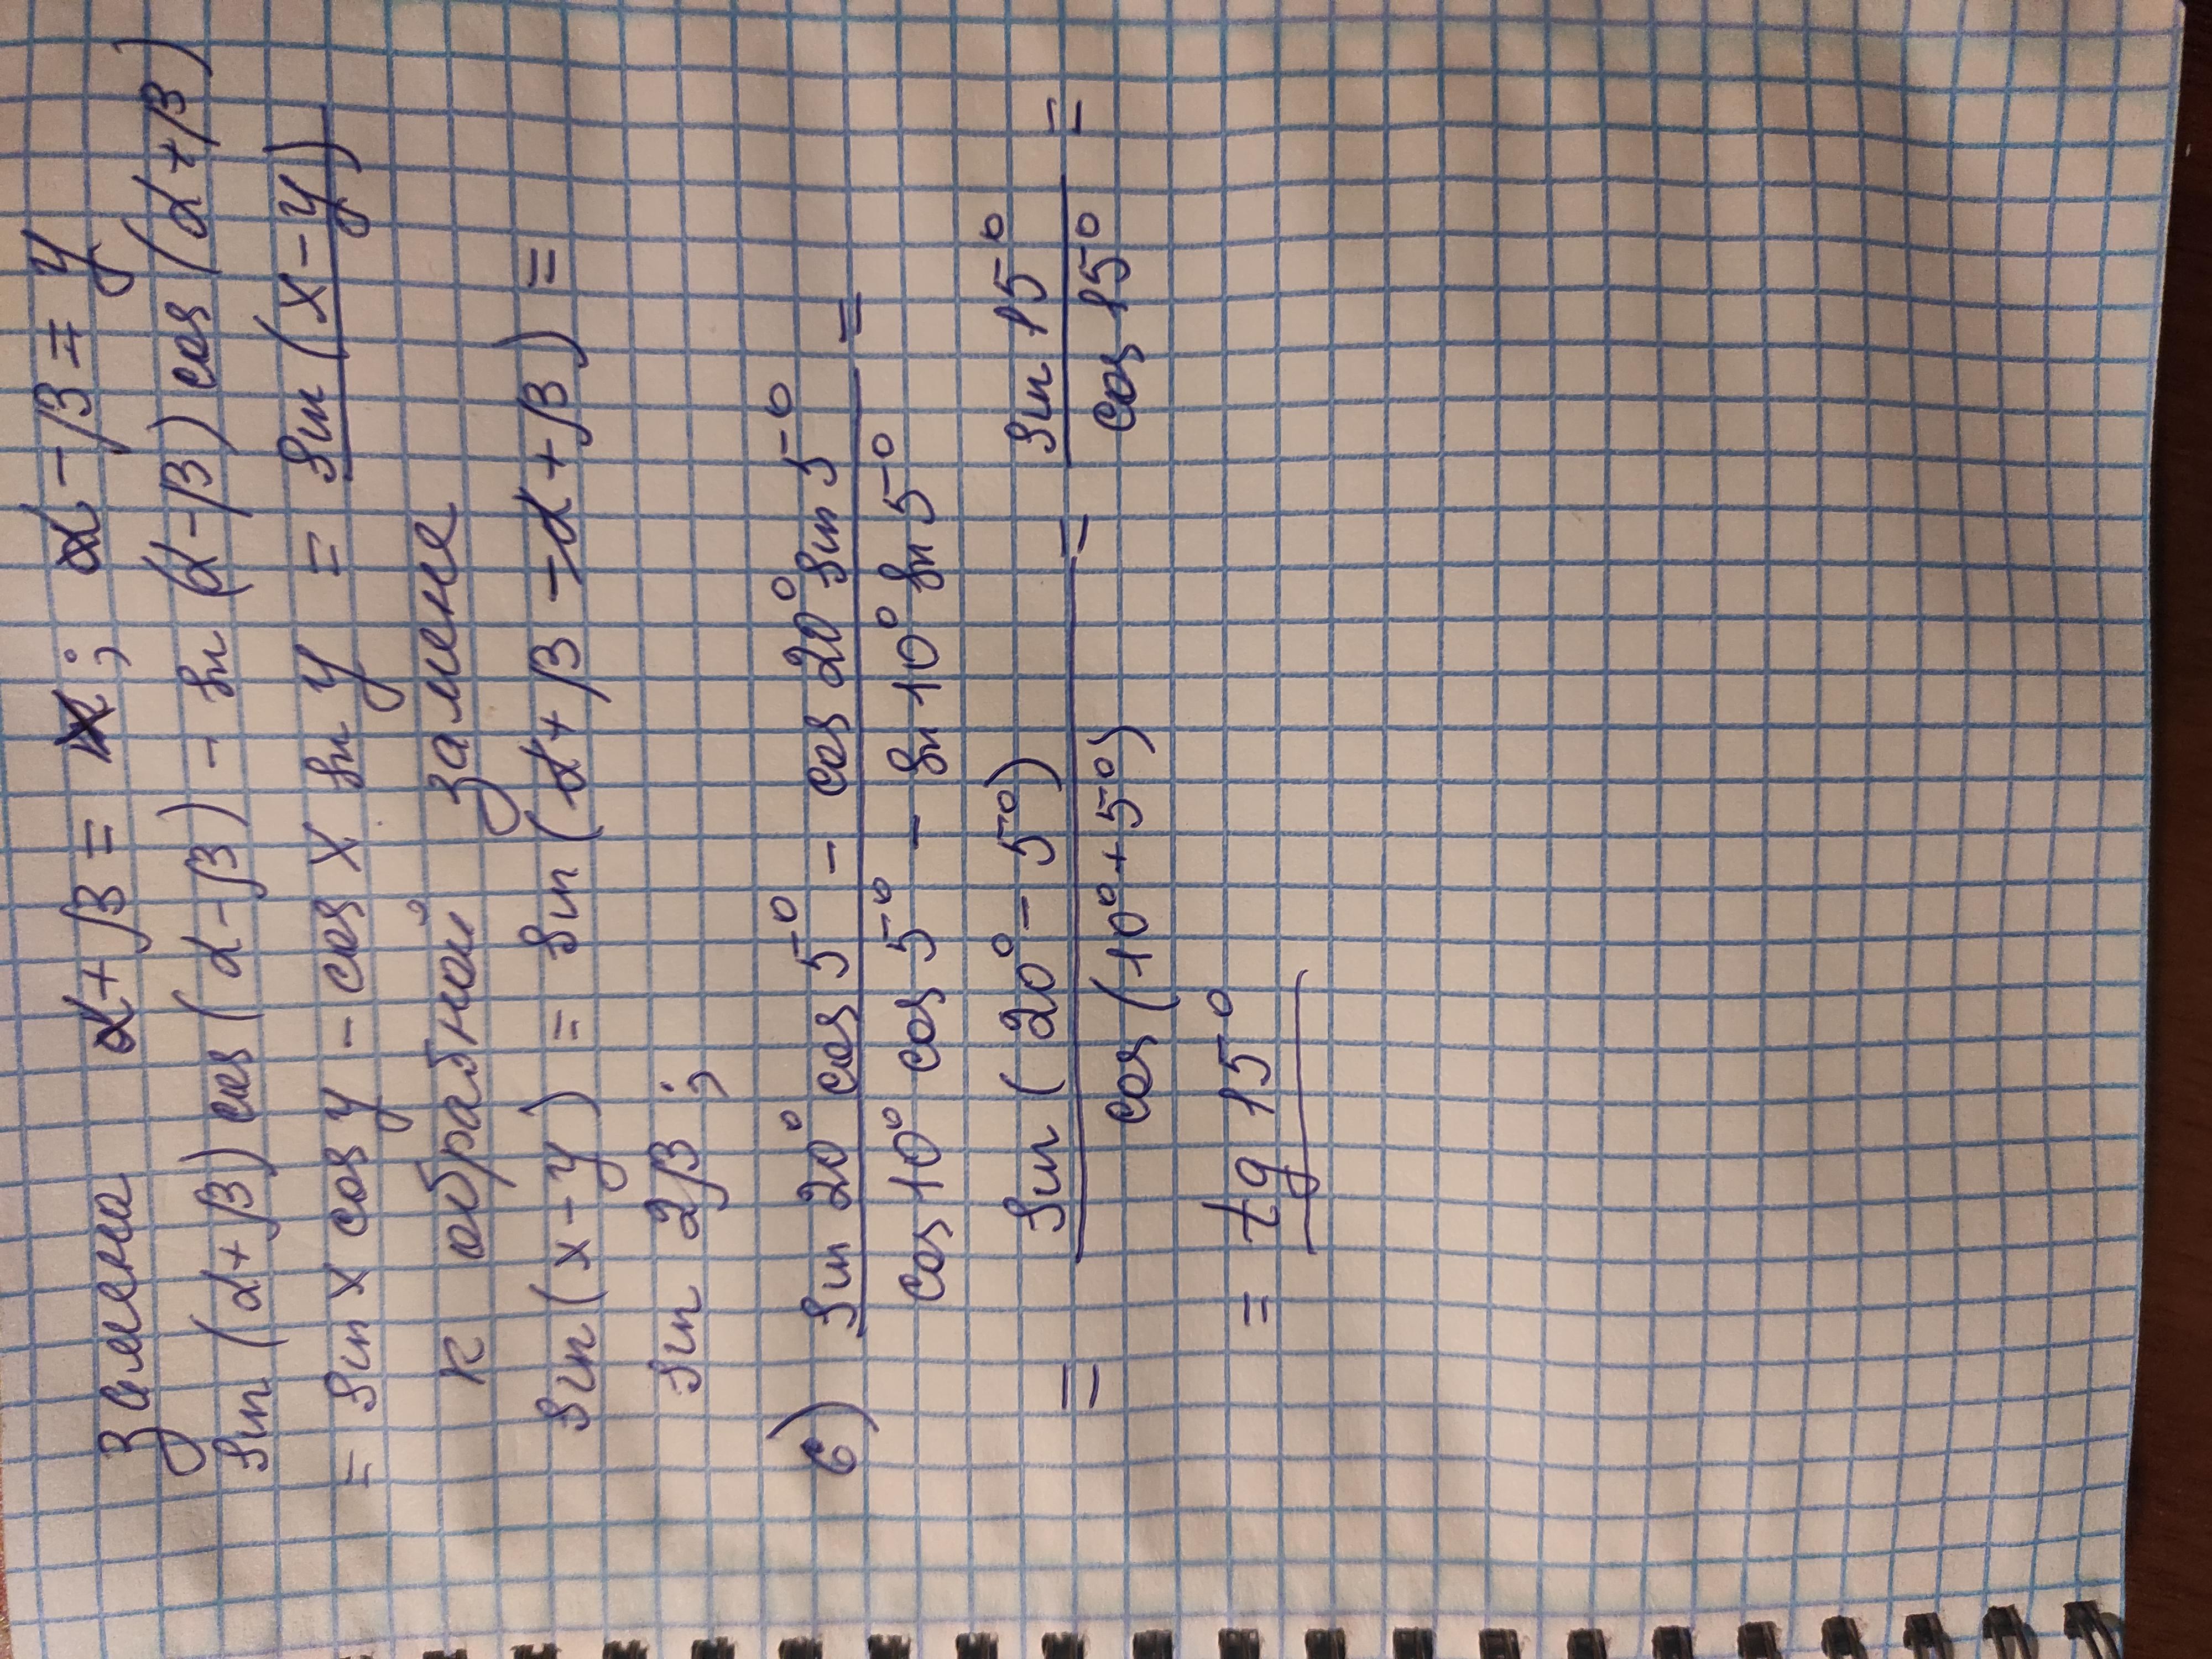 Замена α+β = x; α-β = y
sin (α+β) cos (α-β) - sin (α-β) cos (α+β)
= sin x cos y - cos x sin y = sin (x-y)
к обратной замене
sin (x-y) = sin (α+β-α+β) =
sin 2β;
6) sin 20° cos 5° - cos 20° sin 5° =
cos 10° cos 5° - sin 10° sin 5°
= sin (20° - 5°) = sin 15° =
cos (10° + 5°) cos 15°
= tg 15°